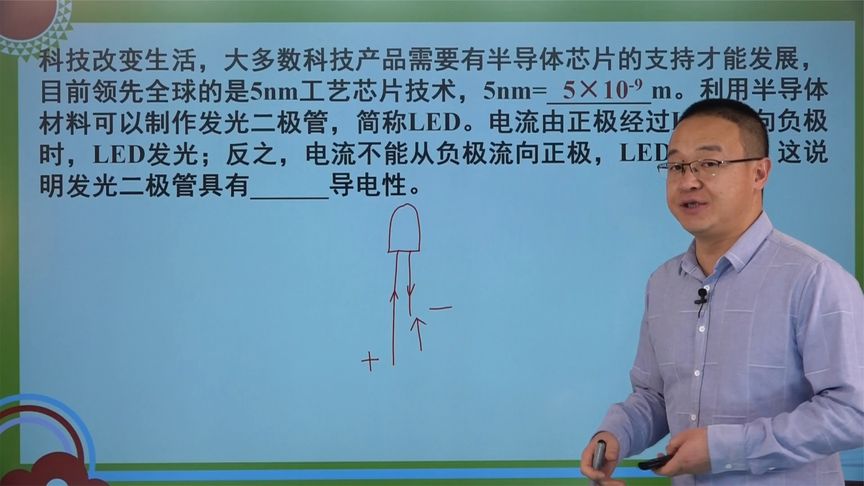 科技改变生活，大多数科技产品需要有半导体芯片的支持才能发展，
目前领先全球的是5nm工艺芯片技术，5nm= 5×10⁻⁹ m。利用半导体
材料可以制作发光二极管，简称LED。电流由正极经过 向负极
时，LED发光；反之，电流不能从负极流向正极，LED 这说
明发光二极管具有______导电性。
−
+